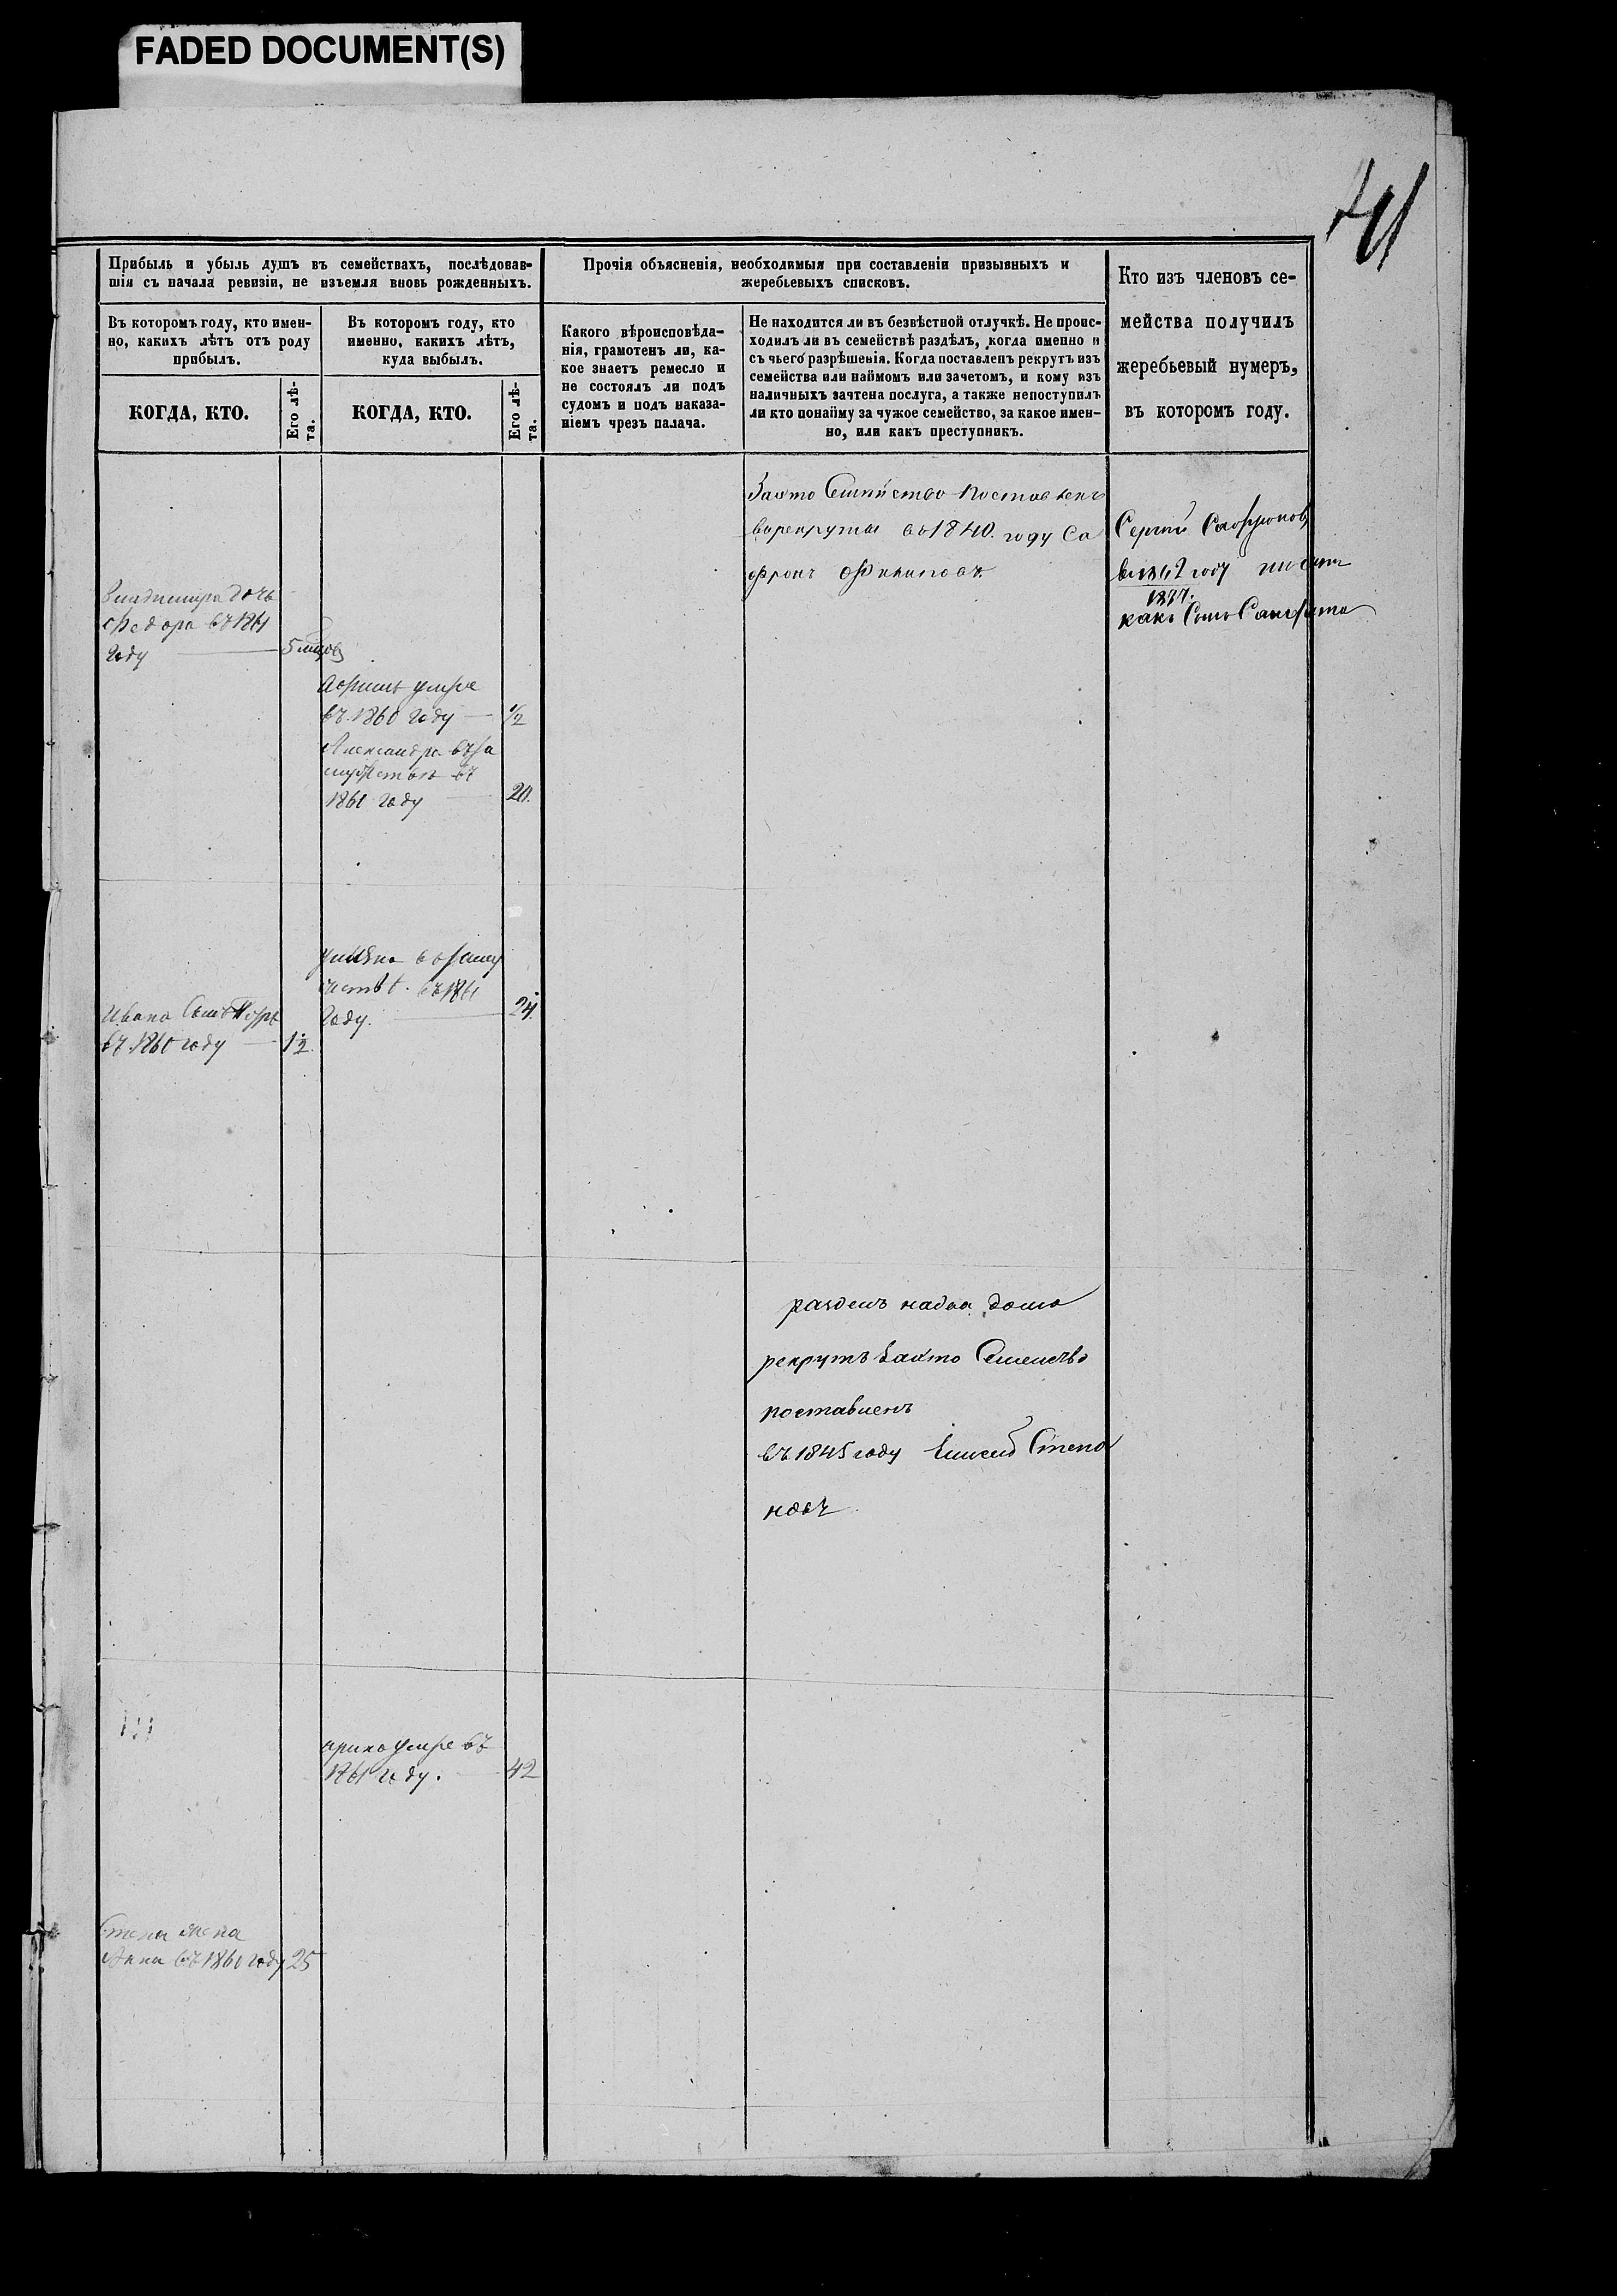 FADED DOCUMENT(S)
Прибыль и убыль душъ въ семействахъ, послѣдовав-
шія съ начала ревизіи, не изъемля вновь рожденныхъ.
Прочія объясненія, необходимыя при составленіи призывныхъ и
жеребьевыхъ списковъ.
Кто изъ членовъ се-
мейства получилъ
жеребьевый нумеръ,
въ которомъ году.
Въ которомъ году, кто имен-
но, какихъ лѣтъ отъ роду
прибылъ.
Въ которомъ году, кто
именно, какихъ лѣтъ,
куда выбылъ.
Какого вѣроисповѣда-
нія, грамотенъ ли, ка-
кое знаетъ ремесло и
не состоялъ ли подъ
судомъ и подъ наказа-
ніемъ чрезъ палача.
Не находится ли въ безвѣстной отлучкѣ. Не проис-
ходилъ ли въ семействѣ раздѣлъ, когда именно и
съ чьего разрѣшенія. Когда поставленъ рекрутъ изъ
семейства или наймомъ или зачетомъ, и кому изъ
наличныхъ зачтена послуга, а также непоступилъ
ли кто понайму за чужое семейство, за какое имен-
но, или какъ преступникъ.
КОГДА, КТО.
Его лѣ-
та.
КОГДА, КТО.
Его лѣ-
та.
Заэто Семейство поставленъ
врекруты въ 1840. году Са
фронъ Филиповъ.
Сергей Сафроновъ
1837.
какъ Сынъ
дочь
въ 1861
году
5
умре
въ 1860 году 1/2
Александра въ за
мужство въ
1861 году 20.
въ замуж
ствѣ въ 1861
году. 24
Ивана Сынъ
въ 1860 году 1/2
разделъ надва дома
рекрутъ Заэто Семейство
поставленъ
въ 1845 году Елисей Степа
новъ
арина умре въ
1861 году. 42
жена
Анна въ 1860 году 25